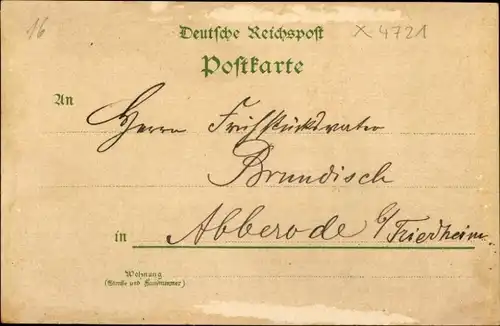 16
Deutsche Reichspost
X 4721
Postkarte
An
Herrn Frühstücksvater
Brundisch
in Abberode b/Friedheim.
Wohnung
(Straße und Hausnummer)